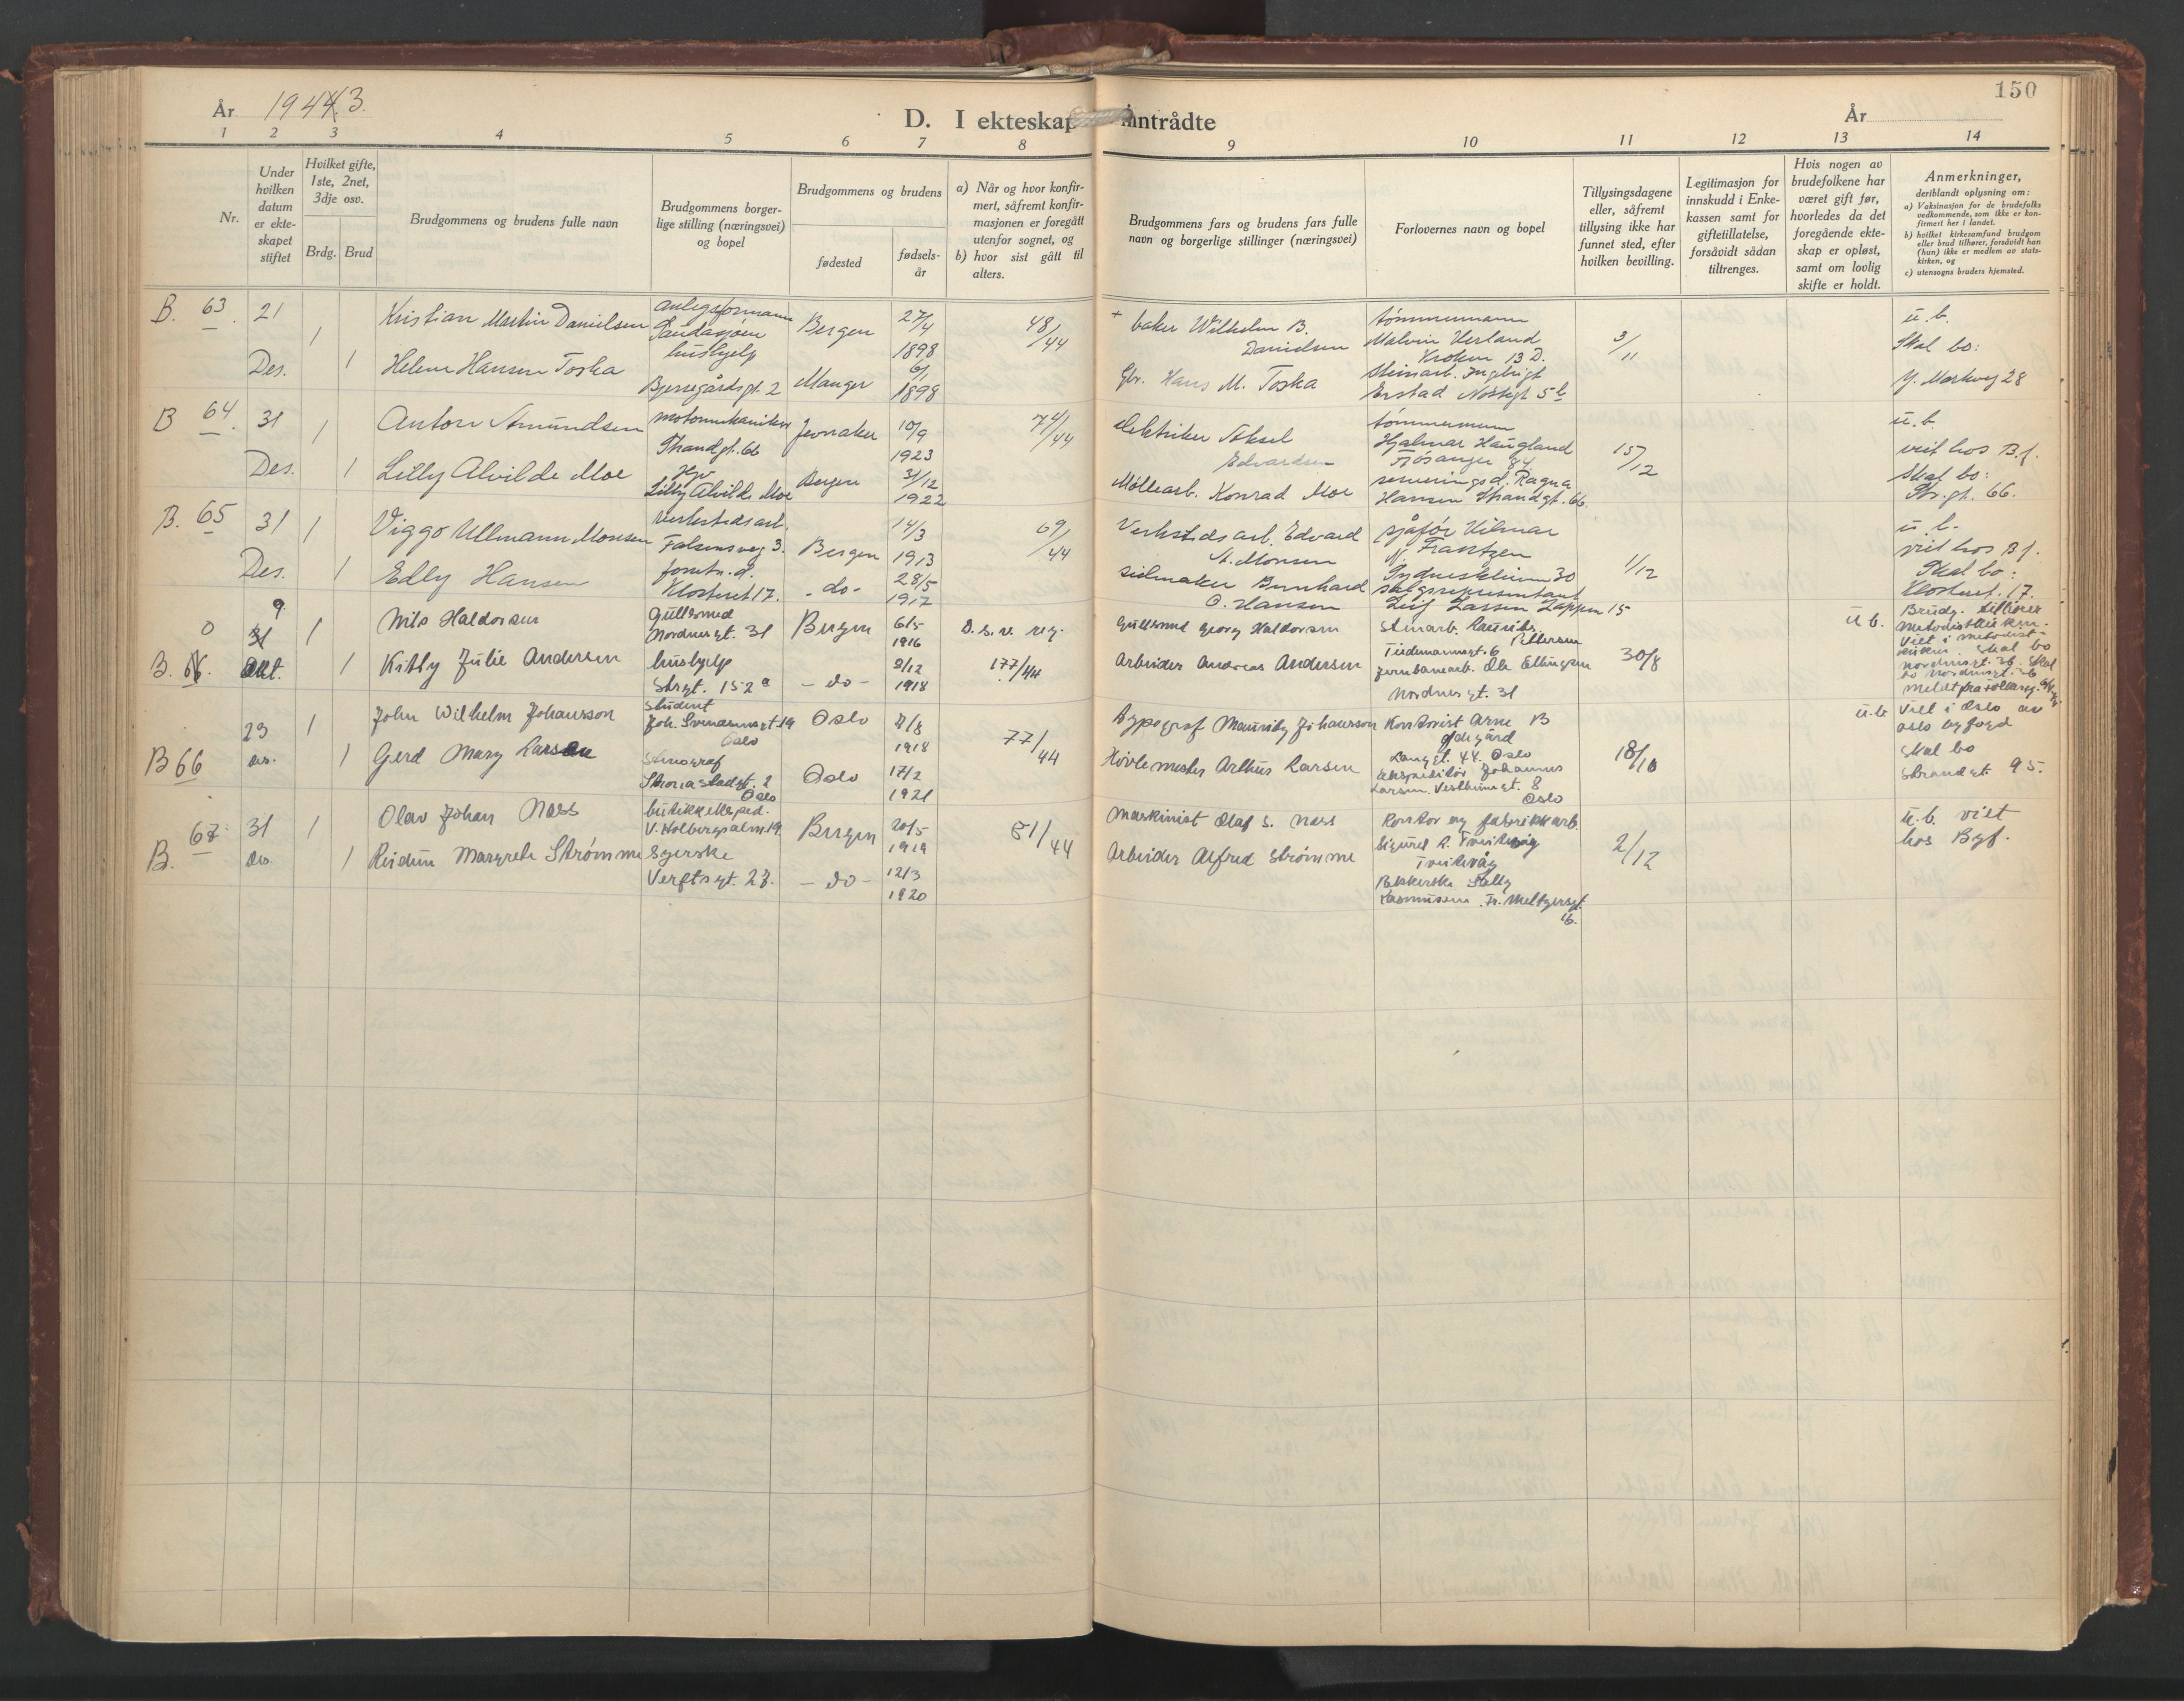 År 1943.
D. I ekteskap inntrådte
År
150
1 2 3 4 5 6 7 8 9 10 11 12 13 14
Nr.
Under hvilken datum er ekteskapet stiftet
Hvilket gifte, 1ste, 2net, 3dje osv.
Brdg. Brud
Brudgommens og brudens fulle navn
Brudgommens borgerlige stilling (næringsvei) og bopel
Brudgommens og brudens
fødested
fødselsår
a) Når og hvor konfirmert, såfremt konfirmasjonen er foregått utenfor sognet, og
b) hvor sist gått til alters.
Brudgommens fars og brudens fars fulle navn og borgerlige stillinger (næringsvei)
Forlovernes navn og bopel
Tillysingsdagene eller, såfremt tillysing ikke har funnet sted, efter hvilken bevilling.
Legitimasjon for innskudd i Enkekassen samt for giftetillatelse, forsåvidt sådan tiltrenges.
Hvis nogen av brudefolkene har været gift før, hvorledes da det foregående ekteskap er opløst, samt om lovlig skifte er holdt.
Anmerkninger,
deriblandt oplysning om:
a) Vaksinasjon for de brudefolks vedkommende, som ikke er konfirmert her i landet.
b) hvilket kirkesamfund brudgom eller brud tilhører, forsåvidt han (hun) ikke er medlem av statskirken, og
c) utensogns bruders hjemsted.
B. 63. 21 Des.
1 Kristian Martin Danielsen
anlegsformann
Bergen 27/4 1898
48/44
+ baker Wilhelm B. Danielsen
tømmermann
Malvin Verland
Kroken 13 D.
3/11
u. b.
Skal bo:
1 Helene Hansen Toska
hushjelp
Bjersegårdsgt. 2
Manger 6/1 1898
Gbr. Hans M. Toska
steinarb. Ingebrigt
Erstad Nøstegt 5b
Y. Markvei 28
B 64. 31 Des.
1 Anton Amundsen
motormekaniker
Strandgt. 66
Jevnaker 10/9 1923
74/44
elektriker Aksel Edvardsen
tømmermann
Hjalmar Haugland
Fjøsanger 84
15/12
u. b.
viet hos B.f.
Skal bo:
Str.gt. 66.
1 Lilly Alvilde Moe
Lilly Alvilde Moe
Bergen 31/12 1922
Møllearb. Konrad Moe
serveringsd. Ragna
Hansen Strandgt. 66.
B. 65 31 Des.
1 Viggo Ullmann Monsen
Verkstedsarb.
Falsensvey 3.
Bergen 14/3 1913
69/44
Verkstedsarb. Edvard A. Monsen
sjåfør Hilmar
N. Frantzen
Sydneskleiven 30
1/12
u. b.
viet hos B.f.
Skal bo:
Klosteret. 17.
1 Edly Hansen
forretn. d.
Klosteret 17.
- do - 28/5 1917
seilmaker Bernhard O. Hansen
salgsrepresentant
Leif Lassen Zappen 15
0 9 31 Okt.
B. 66.
1 Nils Haldorsen
Gullsmed
Nordnesgt. 31
Bergen 6/5 1916
D. s. v. reg.
177/44
Gullsmed Georg Haldorsen
Steinarb. Lauritz Pettersen
Tiedemannsgt. 6
30/8
u. b. Brudg. tilhører
metodistkirken.
Viet i metodist-
kirken. Skal bo
1 Kitty Julie Andersen
hushjelp
Strgt. 152 a
- do - 8/12 1918
Arbeider Andreas Andersen
jernbanearb. Ole Ellingsen
Nordnesgt. 31
B 66 23 des.
1 John Wilhelm Johansson
Student
Joh. Svendsensgt. 19
Oslo
Oslo 7/8 1918
77/44
Typograf Mauritz Johansson
Kontorist Arne B
Ødegård
Langgt. 44. Oslo
18/10
u. b. Viet i Oslo av
Oslo byfogd
Skal bo
Strandgt. 95.
1 Gerd Mary Larsen
Stenograf
Oslo
Oslo 17/2 1921
Høvlemester Arthur Larsen
ekspeditør Johannes
Larsen. Vestheimgt. 8
Oslo
B. 67 31 des
1 Olav Johan Næss
butikkeksped.
V. Holbergsalm. 19.
Bergen 20/5 1919
81/44
maskinist Olaf S. Næss
Kontor og fabrikkarb.
Sigurd R. Tveiteråg
Tveitevåg
2/12
u. b. viet
hos Byf.
1 Reidun Margrete Strømme
Syerske
Verftsgt. 27.
- do - 12/3 1920
Arbeider Alfred Strømme
Pakkerske Solly
Rasmussen. Fr. Meltzersgt.
16.